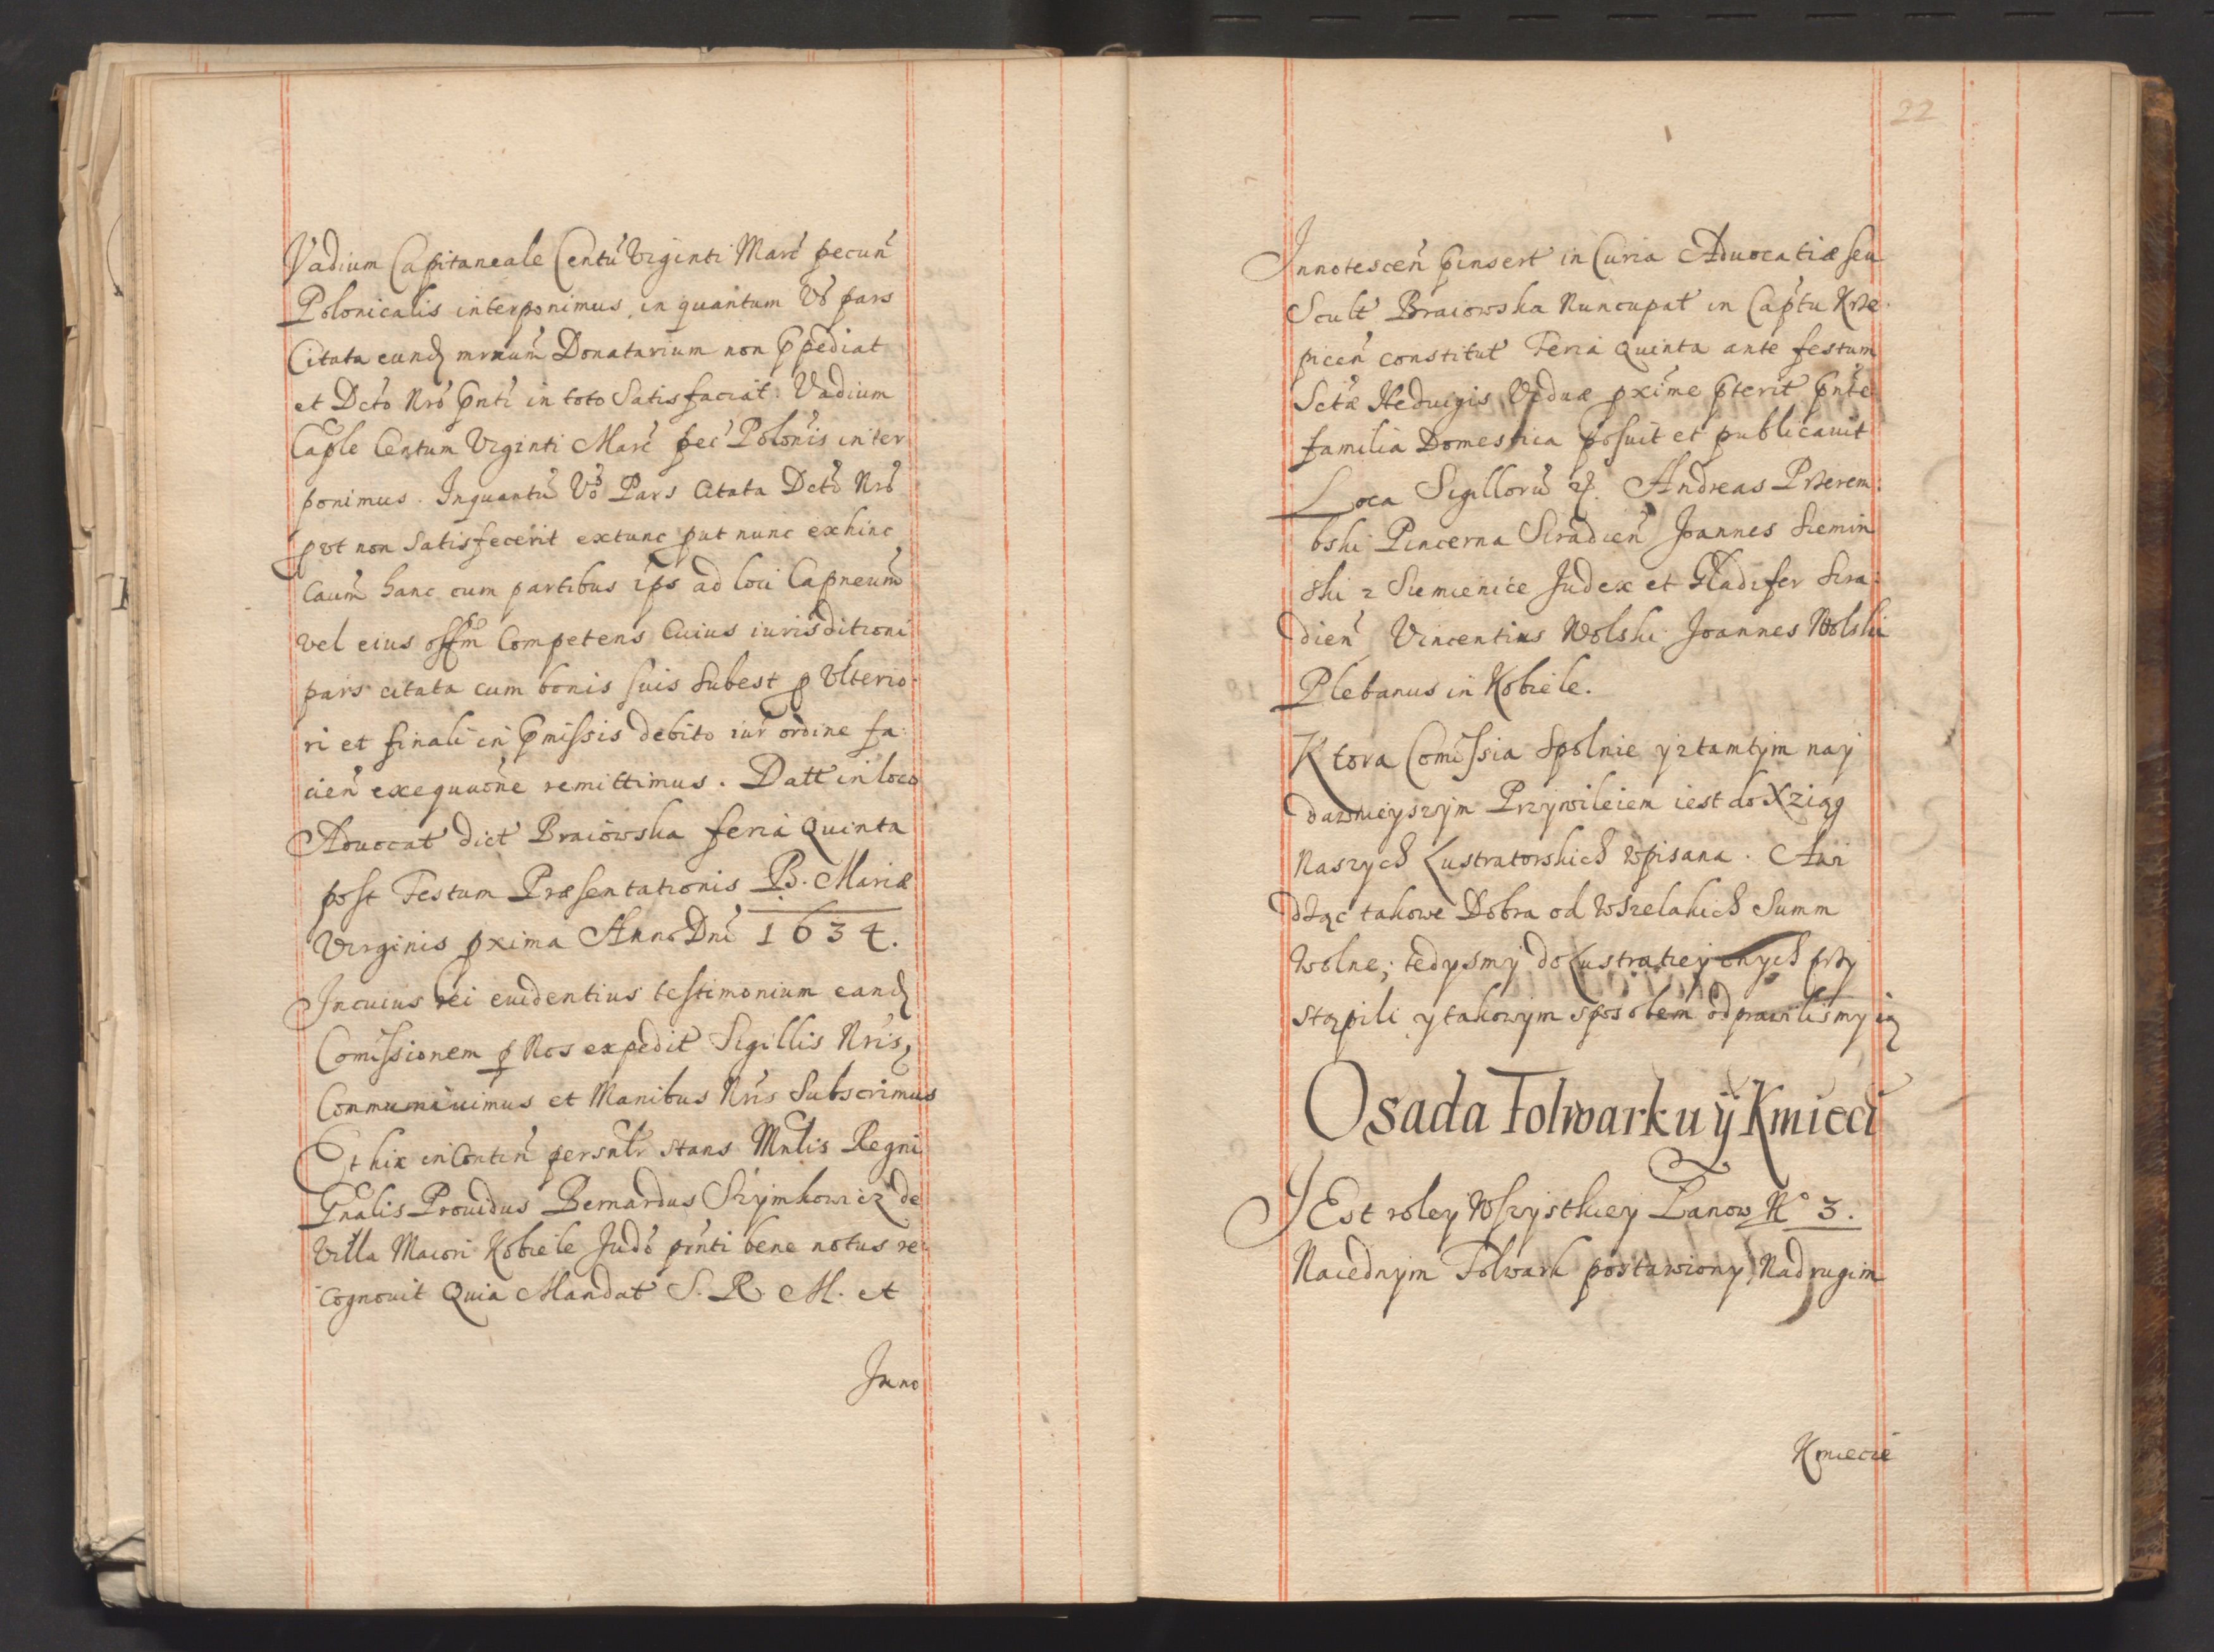 Vadium Capitaneale Centũ Viginti Marc̃ pecuñ
Polonicalis interponimus, in quantum Vo pars
Citata eund Donatarium non
et Dcto Nro pnti in toto Satisfaciat. Vadium
Caple Centum Viginti Marc̃ pec̃ Polonis inter
ponimus. Inquantũ Vo Pars Citata Dcto Nro
put non Satisfecerit extunc put nunc exhinc
Caum hanc cum partibus ips ad loci Capneum
vel eius offm Competens Cuius iurisditioni
pars citata cum bonis suis Subest p Vlterio.
ri et finali in pmissis debito iur ordine fa
cien exequuõne remittimus. Datt in loco
Aduocat dict Braiowska feria Quinta
post Festum Præsentationis B. Mariæ
Virginis pxima Anno Dni 1634.
Incuius rei euidentius testimonium eand
Comissionem p Nos expedit Sigillis Nris,
Communiuimus et Manibus Nris Subscrimus
Et hic inContin persnlr stans Mnlis Regni
Gnalis Prouidus Bernardus Szymkowicz de
Villa Maiori Kobiele Judo pnti bene notus re
cognouit Quia Mandat S. R. M. et
Inno
22
Innotescen pinsert in Curia Aduocatiæ seu
Scult Braiowska Nuncupat in Captu Krze.
picen constitut Feria Quinta ante festum
Sctæ Heduigis Viduæ pxime pterit pnte
familia Domestica posuit et publicauit
Loca Sigillorũ Andreas Przerem:
bski Pincerna Siradien Joannes Siemin
ski z Siemienice Judex et Gladifer Sira:
dien Vincentius Wolski Joannes Wolski
Plebanus in Kobiele.
Ktora Comissia Spolnie y z tamtym nay
dawnieyszym Przywileiem iest do Xziąg
Naszych Lustratorskich wpisana. Awi
dząc takowe Dobra od wszelakich Summ
wolne; tedysmy do Lustratiey onych przy
stąpili y takowym sposobem odprawilismy ią
Osada Folwarku ÿ Kmieci
IEst roley Wszystkiey Łanow No 3.
Naiednym Folwark postawiony, Nadrugim
Kmiecie